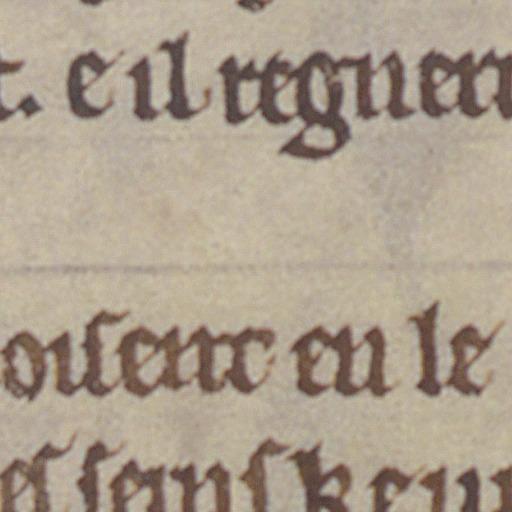 t. e il regner
oisent en le
es seins ken